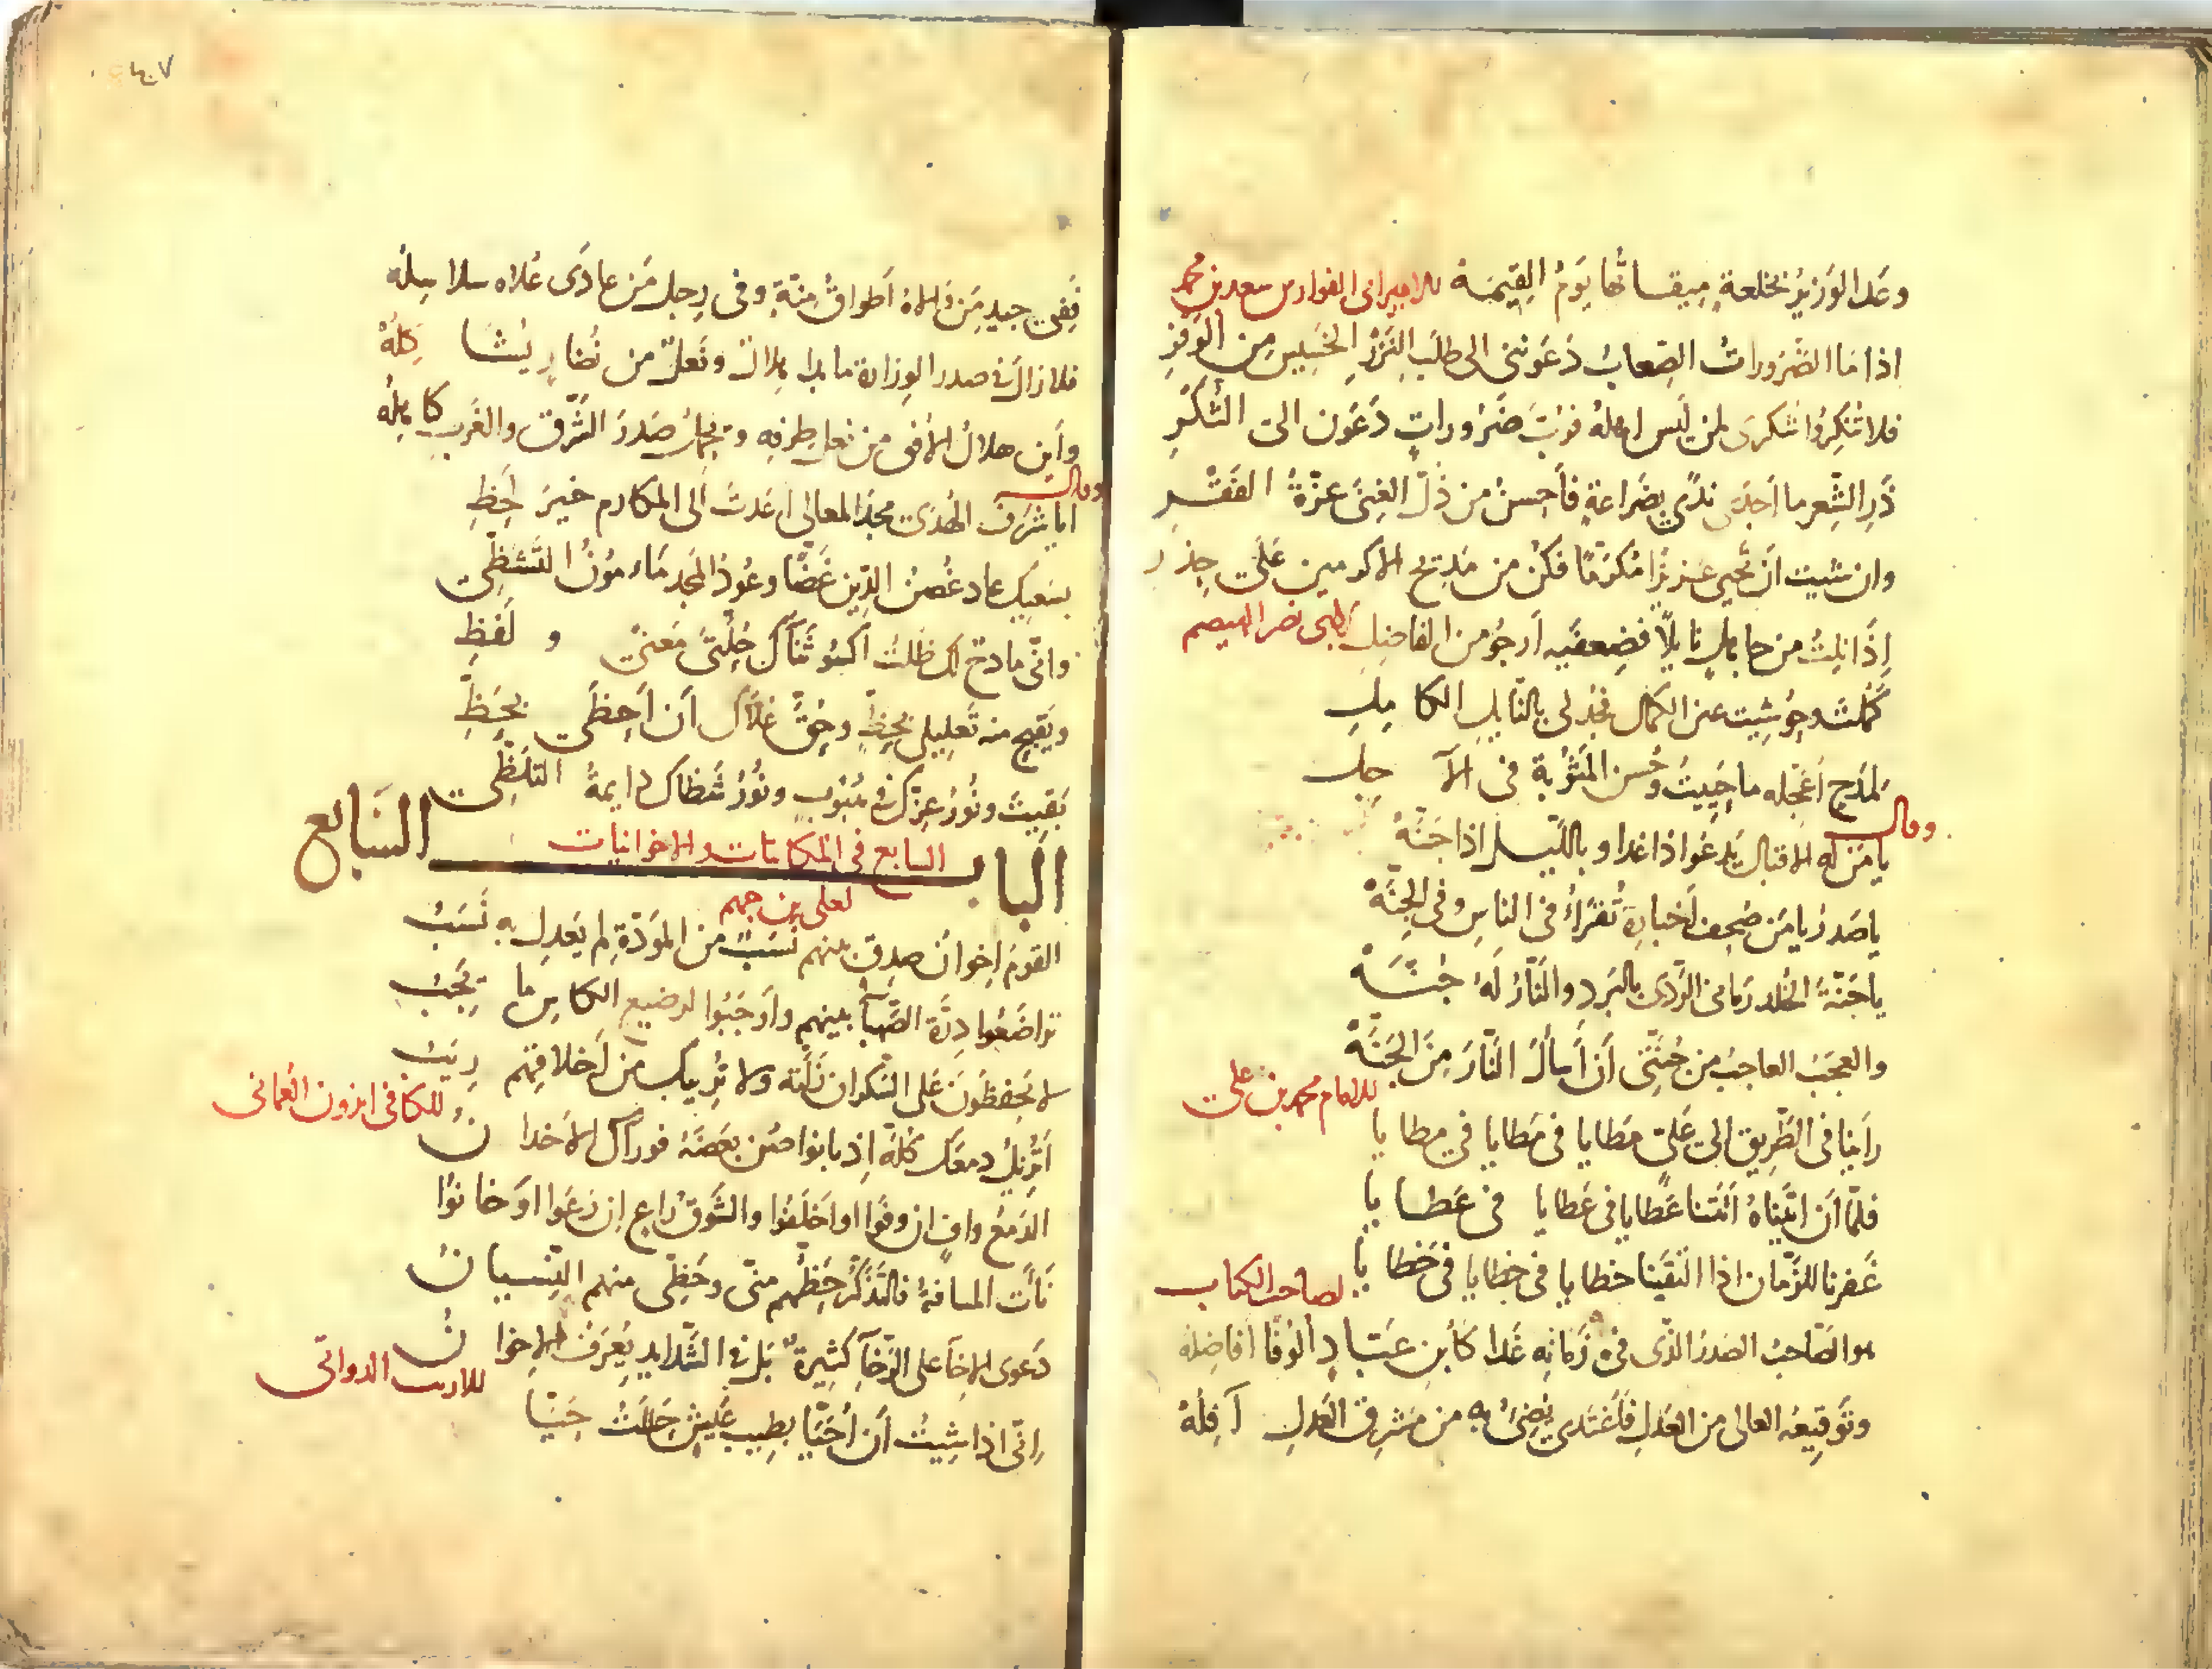 وعَدَ الوَزيرُ بخلعةٍ مِيقاتُها يَومُ القِيٰمَة للامير ابى الفوارس سعد بن محمد
اذا مَا الضَّرُوراتُ الصِّعابُ دَعَونَنى الى طَلَبِ النَّزْرِ الخَسِيسِ مِنَ الوَفْرِ
فلا تُنكِرُوا شُكرى لمن لَيسَ اهلهُ فرُبَّ ضَرُوراتٍ دَعَون الى الشُّكْرِ
ذَرِ الشِّعر ما اَجدَى نَدًى بِضَراعةٍ فأحسنُ من ذُلِّ الغِنَى عِزّةُ الفَقْرِ
وان شيت اَن تحيى عزيزًا مُكرَمًا فكُن من مَديح الاكرمين عَلَى حِذر
اِذا نِلتُ من نايلًا فضِعفَيه اَرجُو من الفاضِلِ
كَمُلتَ وحُوشِيت عن الكمال فجُد لى بالنّايلِ الكاملِ
لمَدحٍ اُعَجّله ما حَييتُ وحُسن المَثُوبة فى الآجل
وقال
يا مَن له الاقبال يَدعُو اذا غدا و باللّيل اذا جَنَّهْ
يا صَدرُ يا مَن صُحف اَخبارِه تُقرَأُ فى الناسِ وفى الجِنَّهْ
يا جَنّةَ الخُلد رَمانى الرَّدى بالبَردِ والنّارُ لَهُ جُنَّهْ
والعجَبُ العاجبُ من اَن اَسألَ النّارَ مِنَ الجَنَّهْ
للامام محمد بن على
رَاَينا فى الطَّرِيق الى عَلىّ مَطايا فى مَطايا فى مطايا
فلمّا اَن اَتَيناهُ اَتَتنا عَطايا فى عَطايا فى عَطايا
غَفَرنا للزّمان اذا التَقَينا خطايا فى خطايا فى خَطايا لصاحب الكتاب
هو الصّاحبُ الصَدرُ الّذى فى زَمانِه غَدا كَاُبنِ عَبّادٍ اُلُوفًا افاضِلُه
وتَوقِيعُه العالى من العَدلِ فاَغتَدى يُضِىءُ به من مَشرِق العَدلِ آفِلُهْ
فَفِى جيدِ مَن وَالاهُ اَطواقُ مِنّةٍ وفى رِجلِ مَن عادَى عُلاه سلاسِلُه
فلا زالَ فى صدر الوِزارة ما بدا هِلالٌ
وأين هلالُ الاُفق من نعل طِرفِه صَدرَ الشَّرق والغَربِ كاهِلُه
وقال
ايا شَرَفَ الهُدى مجدَ المعالى لى المكارم خيرَ لَحظِ
بسَعيِكَ عاد غُصنُ الدِّين غَضًّا وعُودُ المجد
وانّى مادحٌ لك ظَلتُ اَكسُو ثَنآكَ حُلّتَى مَعنًى و لَفظِ
ويَقبح منه تَعلِيلى بحَظٍّ وحَقَّ عُلاكَ اَن اَحظَى بحَظِّ
بَقِيتَ ونُورُ عِزّكَ فى ونُورُ دايمةُ التلَظِّى
الباب السابع
السابع فى المكاتبات والاخوانيات
لعلى بن جهم
القومُ اِخوانُ صِدقٍ بينهم نَسَبٌ من المَوَدّةِ لم يَعدِل به نَسَبُ
تراضَعُوا دِرَّةَ الصَّهبآ بينهم وأوجَبُوا لرضيع الكاسِ ما يَجِبُ
لا يَحفظُونَ عَلَى السّكرانِ زَلّته ولا يُرِيبك من اَخلاقِهم رِيَبُ
للكافى ابزون العمانى
دمعَكَ كُلَّهُ اِذ بانوا بَعضَهُ فورآك الاَخدانُ
الدَمعُ وافٍ ان وفَوا او اَخلَفُوا والشَّوقُ راعٍ ان رَعَوا او خانوُا
نَأَت المسافةُ فالتَّذَكُّرُ حَظُّهم منّى وحَظّى منهم النِّسيانُ
دَعوى الاخآ على الرّخآ كثيرةٌ بَل فى الشّدايدِ يُعرَفُ الاِخوانُ
للاديب الدوانى
اِنّى اذا شِيتُ اَن اُحَيّا بطِيبِ عَيشٍ